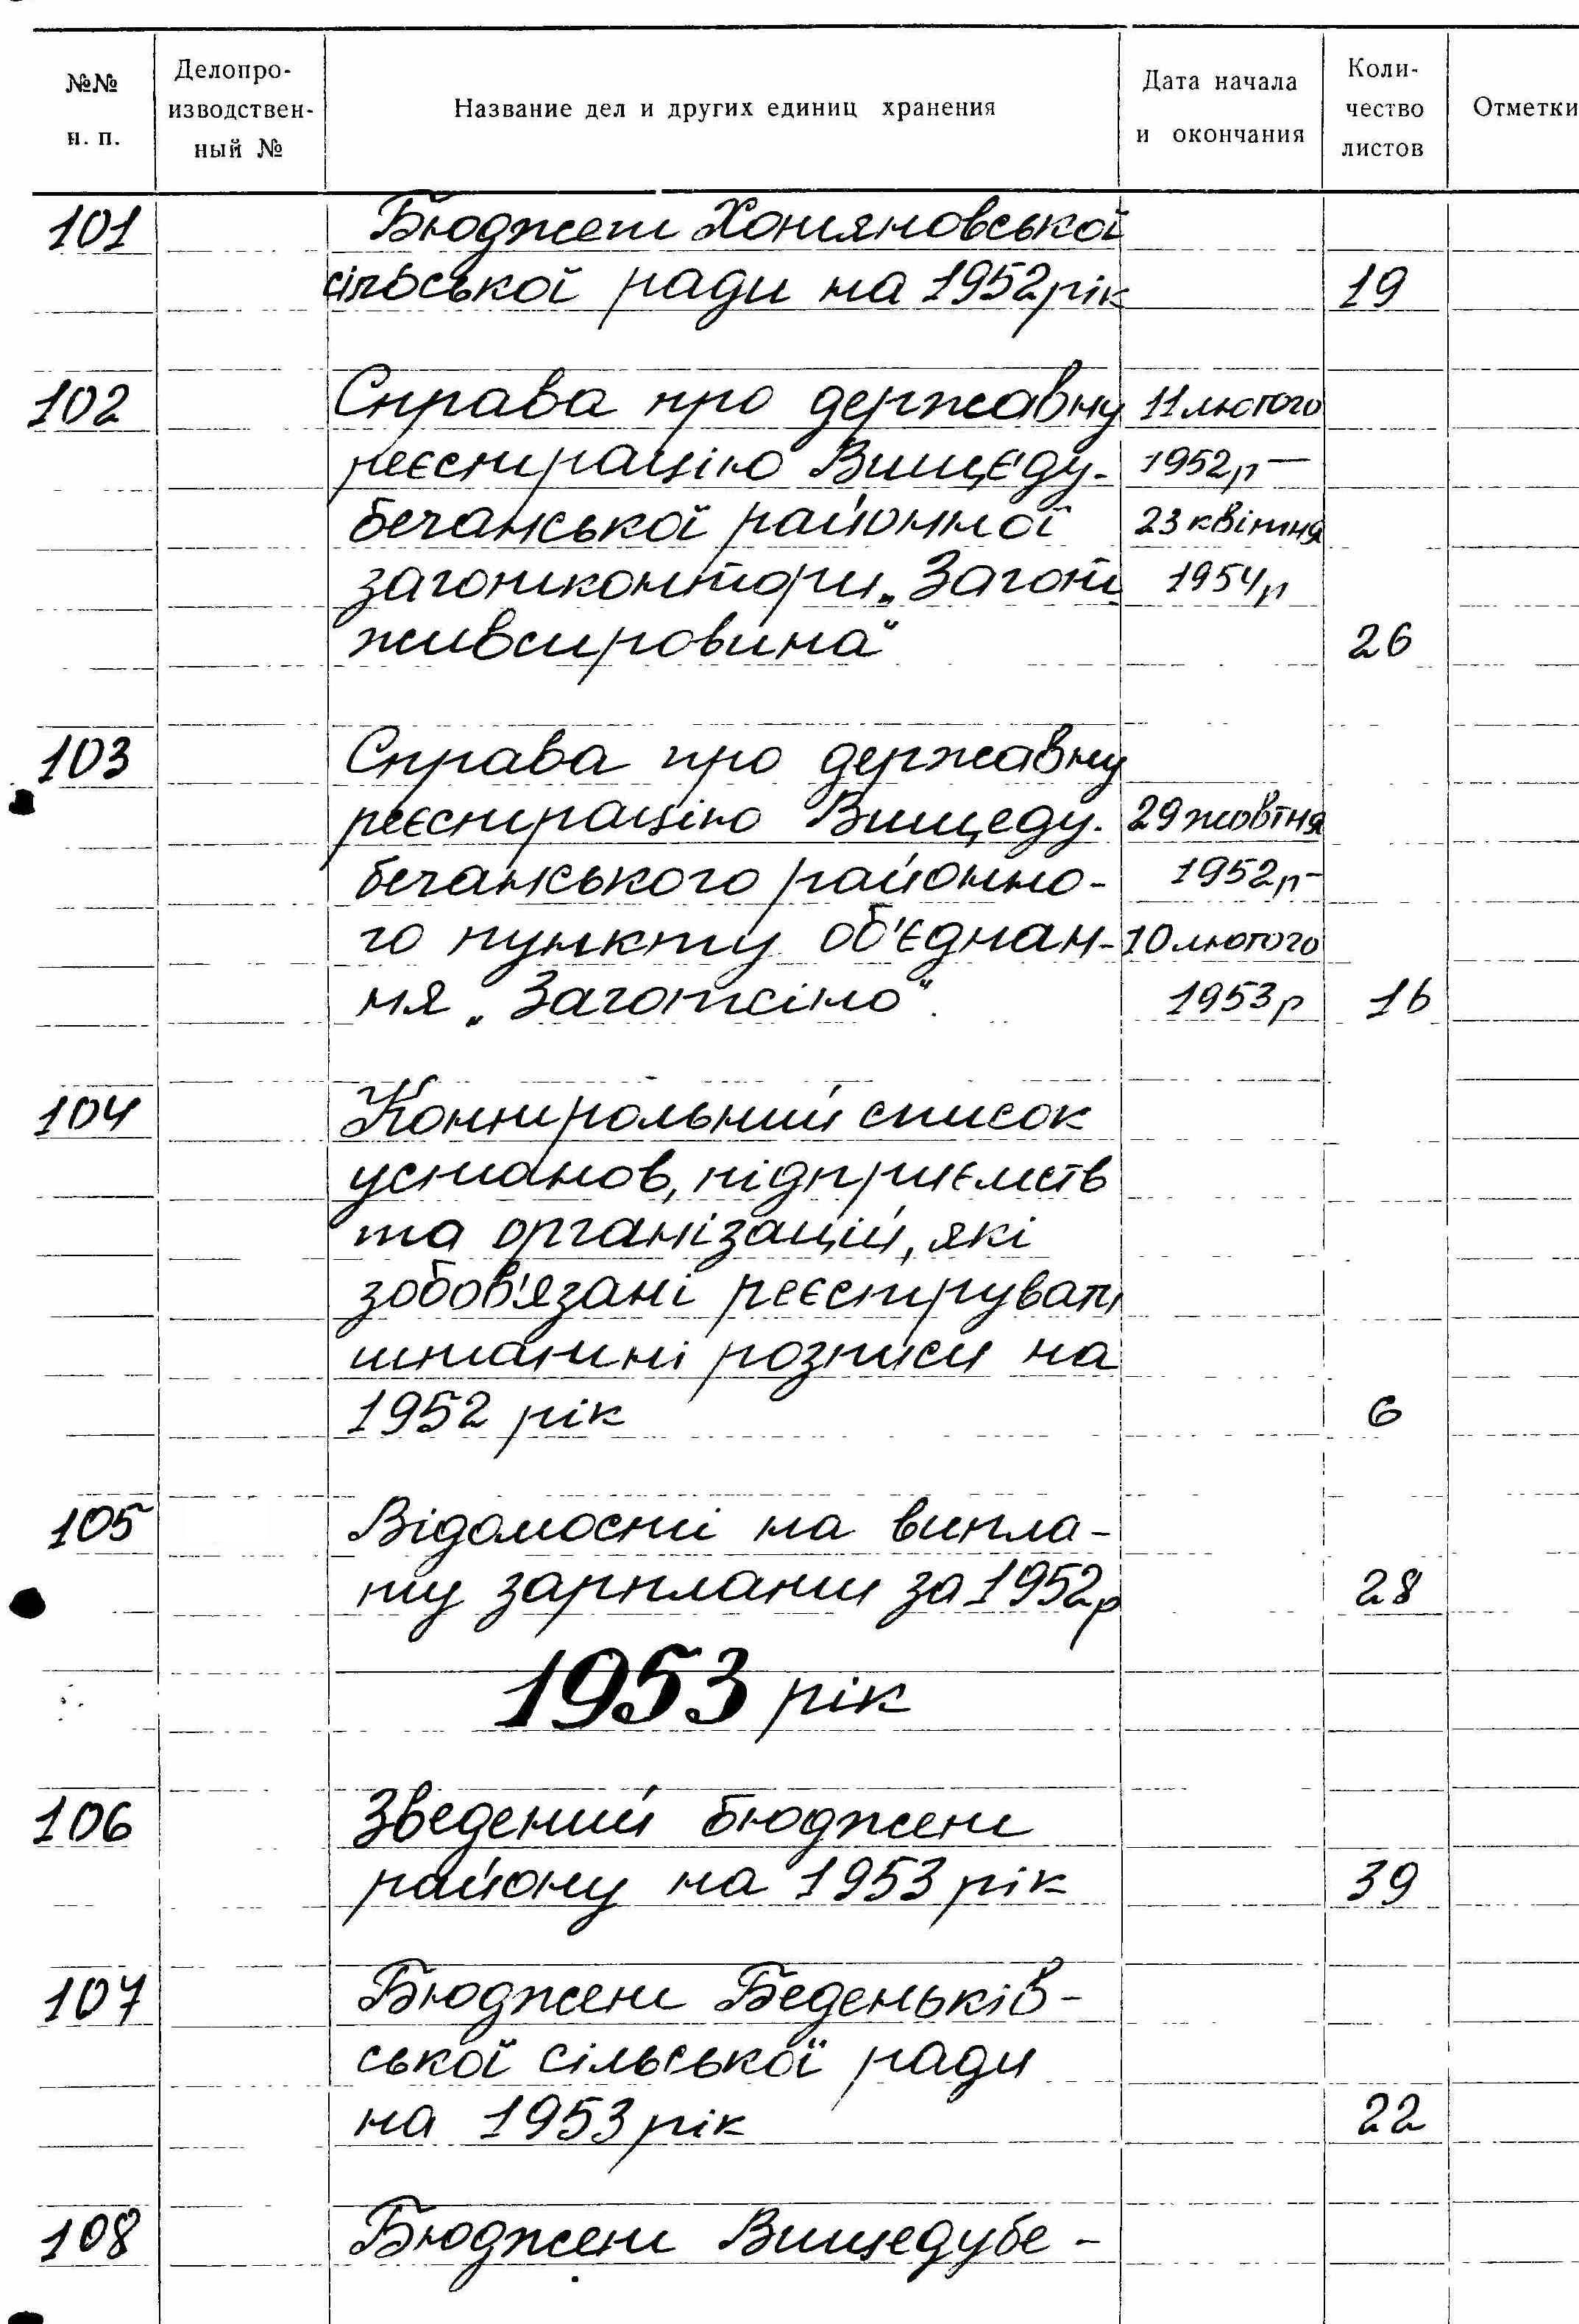 №№ н. п. Делопро-изводствен-ный № Название дел и других единиц хранения Дата начала и окончания Коли-чество листов Отметки
101 Бюджет Хотяновської
сільської ради на 1952 рік 19
102 Справа про державну 11 лютого
реєстрацію Вищеду- 1952р –
бечанської районної 23 квітня
заготконтори „Загот 1954р
живсировина" 26
103 Справа про державну
реєстрацію Вищеду- 29 жовтня
бечанського районно- 1952р –
го пункту об'єднан- 10 лютого
ня „Заготсіно". 1953р 16
104 Контрольний список
установ, підприємств
та організацій, які
зобов'язані реєструвати
штатні розписи на
1952 рік 6
105 Відомості на випла-
ту зарплати за 1952р 28
1953 рік
106 Зведений бюджет
району на 1953 рік 39
107 Бюджет Беденьків-
ської сільської ради
на 1953 рік 22
108 Бюджет Вищедубе-